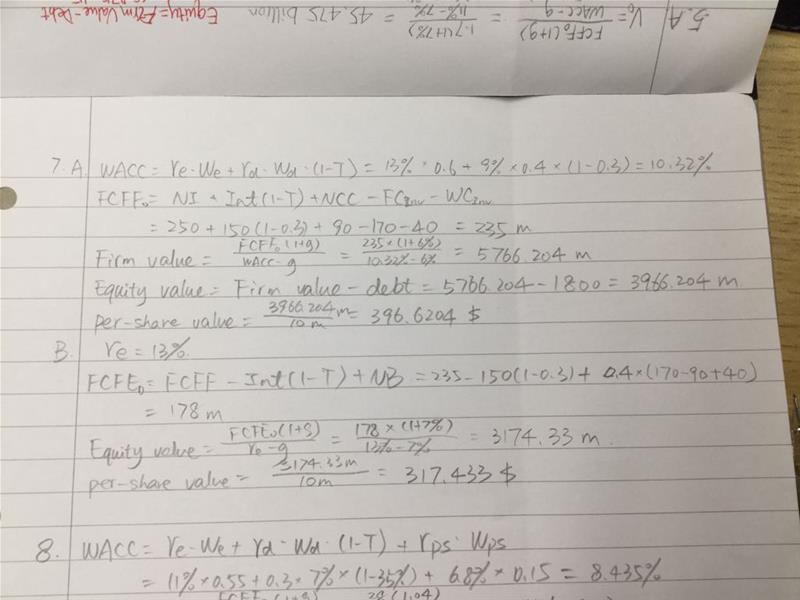 5.A V₀ = FCFF₀(1+g) / WACC-g = 1.7(1+7%) / 11%-7% = 45.475 billion Equity = Firm Value - Debt
7. A. WACC = re·We + rd·Wd·(1-T) = 13% × 0.6 + 9% × 0.4 × (1-0.3) = 10.32%
FCFF₀ = NI + Int(1-T) + NCC - FCInv - WCInv
= 250 + 150(1-0.3) + 90 - 170 - 40 = 235 m
Firm value = FCFF₀(1+g) / WACC-g = 235×(1+6%) / 10.32%-6% = 5766.204 m
Equity value = Firm value - debt = 5766.204 - 1800 = 3966.204 m
per-share value = 3966.204 m / 10 m = 396.6204 $
B. re = 13%
FCFE₀ = FCFF - Int(1-T) + NB = 235 - 150(1-0.3) + 0.4×(170-90+40)
= 178 m
Equity value = FCFE₀(1+g) / re-g = 178×(1+7%) / 13%-7% = 3174.33 m
per-share value = 3174.33m / 10m = 317.433 $
8. WACC = re·We + rd·Wd·(1-T) + rps·Wps
= 11% × 0.55 + 0.3 × 7% × (1-35%) + 6.8% × 0.15 = 8.435%